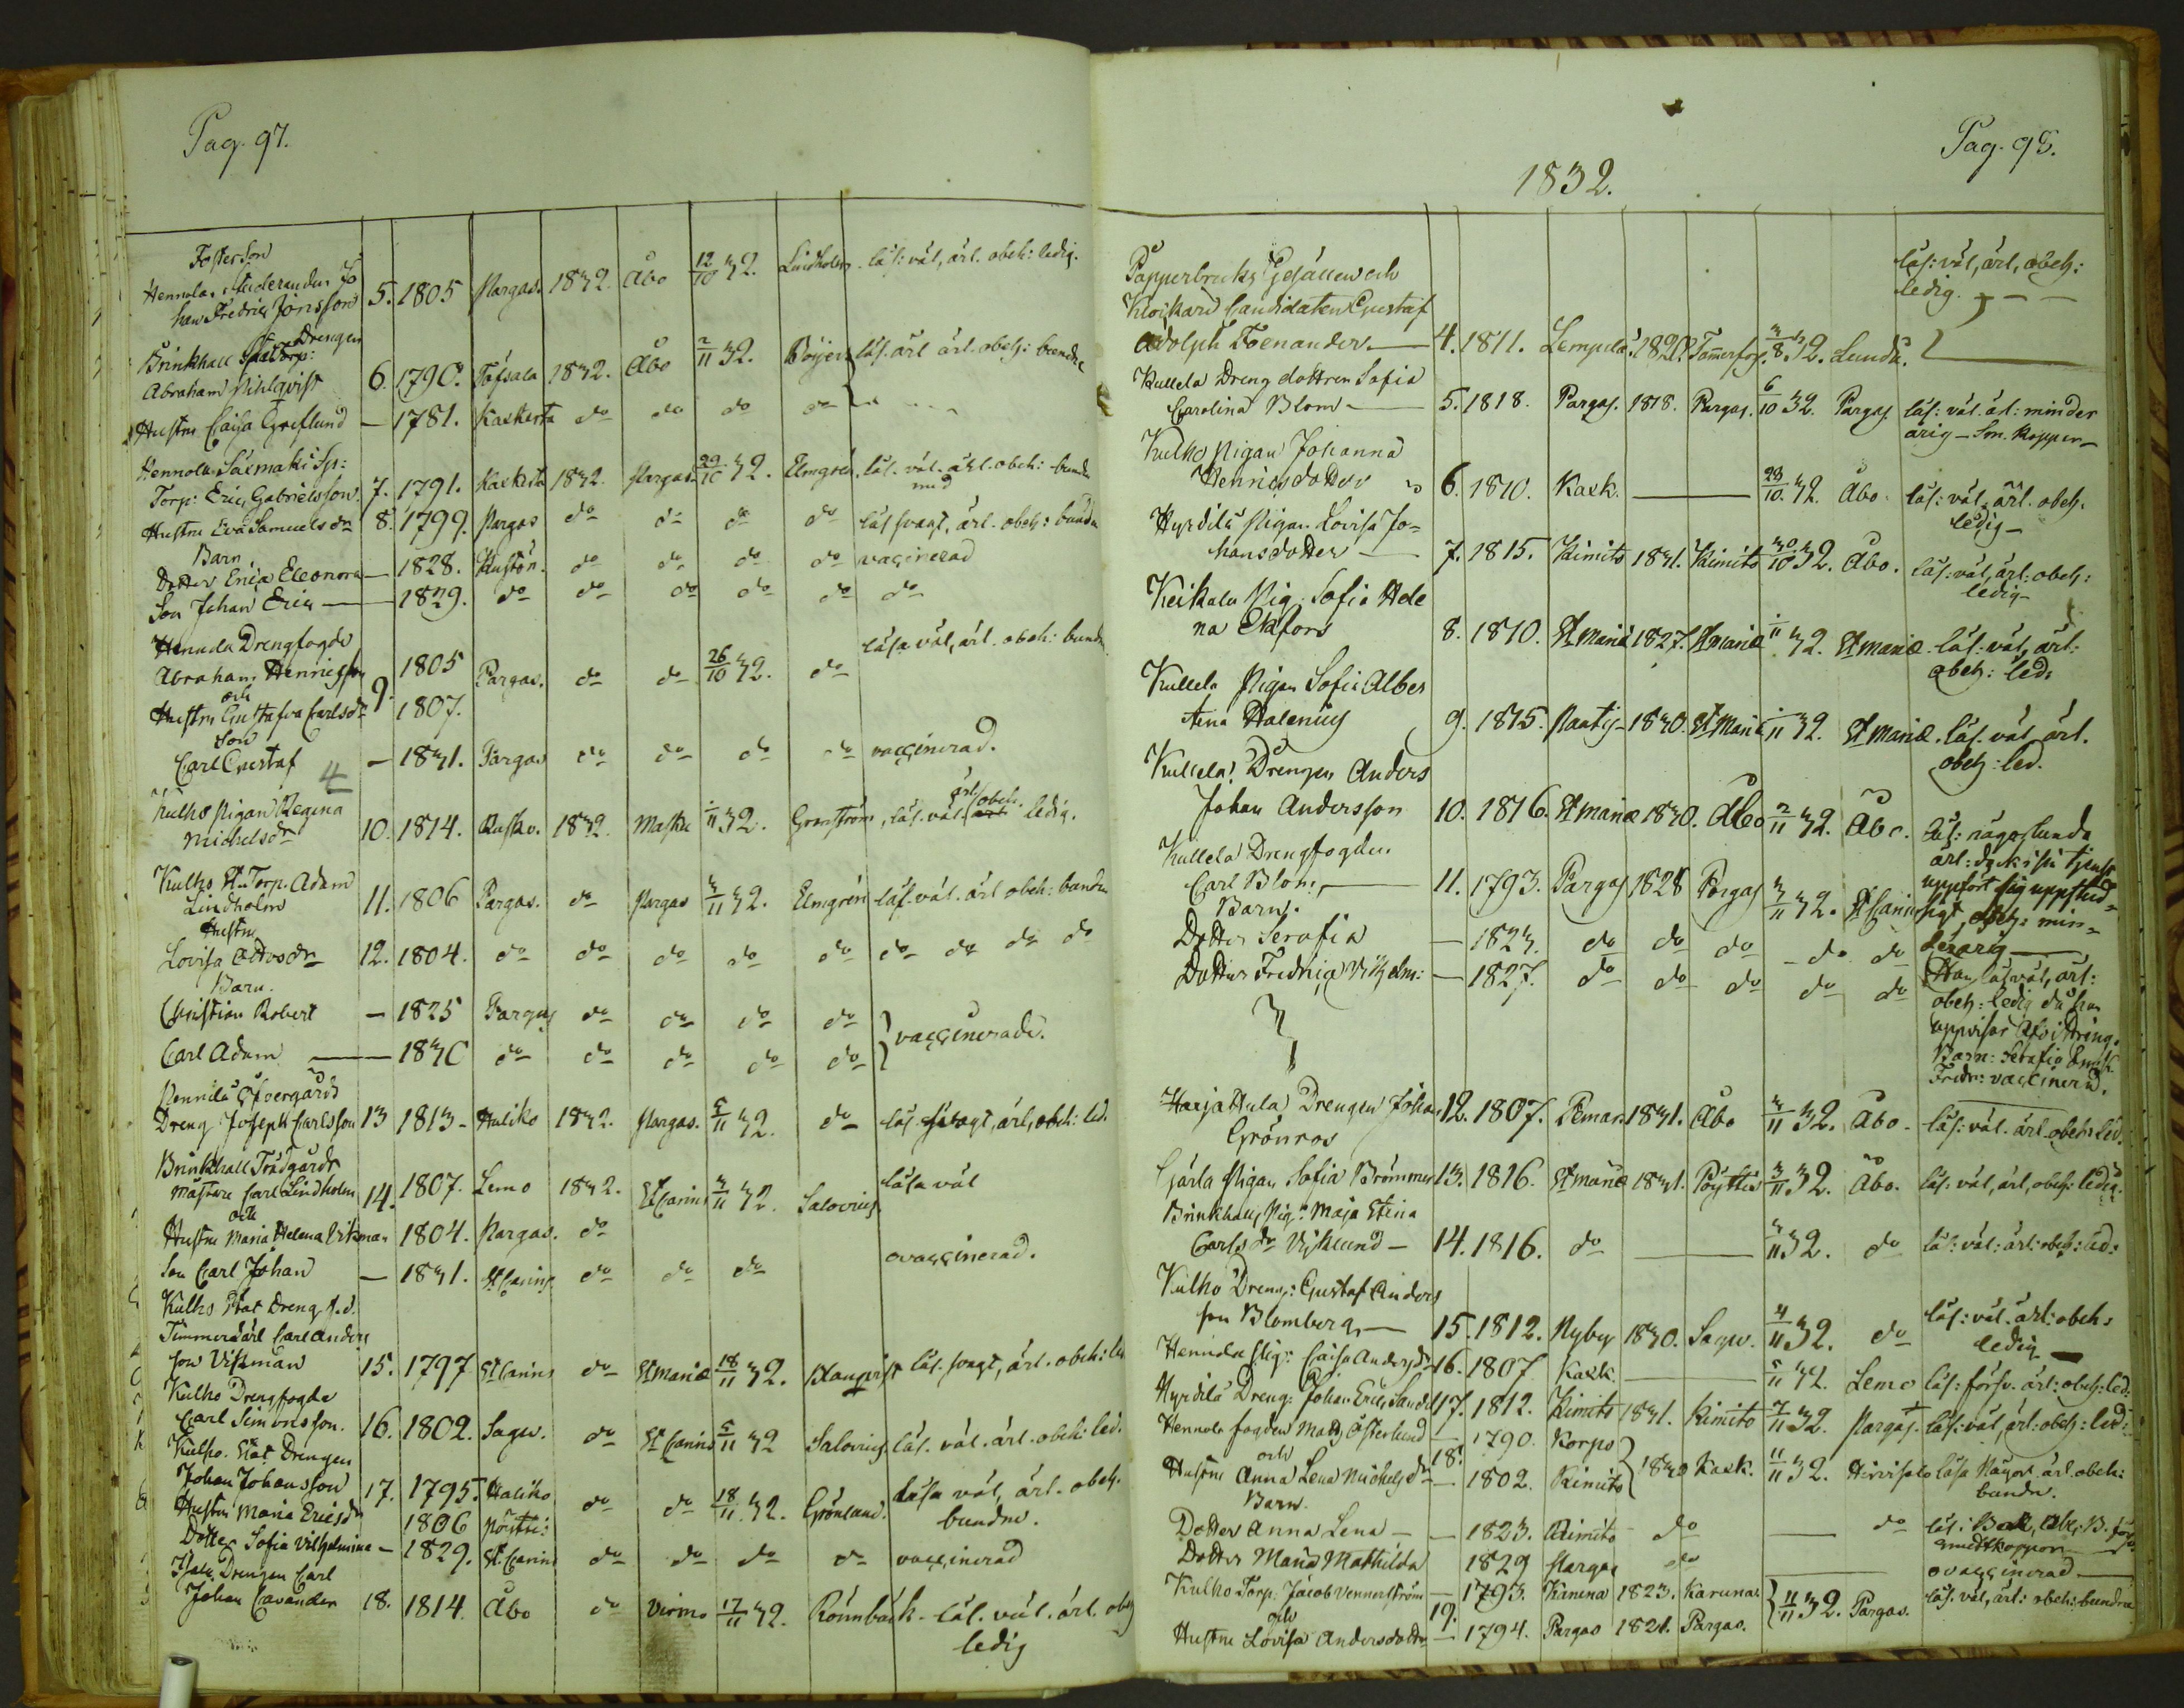 Pag. 97.
Fosterson
Hennola, Studeranden Jo
han Fredric Jonsson 5. 1805 Pargas. 1832. Åbo 12/10 32. Lindholm. läs: väl, ärl. obeh: ledig.
Drengen
Brinkhall
Abraham Pihlqvist 6. 1790. Töfsala 1832. Åbo 2/11 32. Böijer läs. ärl. obeh: bundne
Hustru Caisa Greflund — 1781. Kakskerta do do do do
Hennola Salmaki
Torp: Eric Gabrielsson. 7. 1791. Kakskerta 1832. Pargas. 29/10 32. Elmgren. läs. väl. ärl. obeh: bunden
Hustru Eva Samuelsdr 8. 1799. Pargas do do do do läs svagt, ärl. obeh: bunden
Barn
Dotter Erica Eleonora — 1828. Kustön. do do do do vaccinerad
Son Johan Eric — 1829. do do do do do do
Hennola Drengfogde
Abraham Henricsson 9. 1805 Pargas. do do 26/10 32. do läsa väl, ärl. obeh: bundne
och
Hustru Gustafva Carlsdr 1807.
Son
Carl Gustaf — 1831. Pargas do do do do vaccinerad.
4
Kulho Pigan Regina
Michelsdr 10. 1814. Rusko. 1832. Masku 1/11 32. Granström, läs. väl. ärl. obeh. ledig.
Kulho St. Torp. Adam
Lindholm 11. 1806 Pargas. do Pargas 3/11 32. Elmgren läs. väl. ärl. obeh: bunden
Hustru
Lovisa 12. 1804. do do do do do do do do do
Barn.
Christian Robert — 1825 Pargas do do do do } vaccinerade.
Carl Adam — 1830 do do do do do
Öfvergårds
Dreng Joseph Carlsson 13 1813 - Haliko 1832. Pargas. 5/11 32. do läs. svagt, ärl, obeh: led.
Brinkhall Trädgårds
Mästare Carl Lindholm 14. 1807. Lemo 1832. St Carins 3/11 32. Salovius. läsa väl
och
Hustru Maria Helena Vikman 1804. Pargas. do
Son Carl Johan — 1831. St Carins do do do ovaccinerad.
Kulho Stat Dreng f.d.
Timmerkarl Carl Anders
son Vikman 15. 1797 St Carins do St Mariæ 18/11 32. läs. svagt, ärl. obeh: led
Kulho Drengfogde
Carl Simonsson. 16. 1802. Sagu. do St Carins 5/11 32 Salovius läs. väl. ärl. obeh: led.
Kulho. Stat Drengen
Johan Johansson 17. 1795. Haliko do do 18/11 32. Grönlund. läsa väl, ärl. obeh.
Hustru Maria Ericsdr 1806 Pöytis: bundne.
Dotter Sofia Vilhelmina — 1829. St Carins do do do do vaccinerad
Drengen Carl
Johan Cavander 18. 1814. Åbo do Virmo 17/11 32. Rönnbäck. läs. väl. ärl. obeh
ledig
Pag. 98.
1832.
Papperbruks Gesällen och
Klockare Candidaten Gustaf läs: väl, ärl, obeh:
ledig.
Adolph Foenander — 4. 1811. Lempela. 1820. Tammerfors. 3/8 32. Lunda.
Kullela Dreng dottren Sofia
Carolina Blom — 5. 1818. Pargas. 1818. Pargas. 6/10 32. Pargas läs: väl. ärl: minder
årig
Kulho Pigan Johanna
Henricsdotter 6. 1810. Kask. — 23/10 32. Åbo. läs: väl, ärl. obeh.
ledig
Hyrdilä Pigan Lovisa Jo=
hansdotter — 7. 1815. Kimito 1831. Kimito 30/10 32. Åbo. läs: väl, ärl: obeh:
ledig
Keikala Pig. Sofia Hele
na Ekfors 8. 1810. St Mariæ 1827. St Mariæ 1/11 32. St Mariæ läs: väl, ärl:
obeh: led:
Kullela Pigan Sofia Alber
tina Halenius 9. 1815. Paatis 1830. St Mariæ 1/11 32. St Mariæ. läs. väl. ärl.
obeh: led.
Kullela Drengen Anders
Johan Andersson 10. 1816. St Mariæ 1830. Åbo 2/11 32. Åbo. läs: någorlunda
ärl: dock i sin tjenst
uppfört sig uppstud=
sigt, obeh: min=
derårig
Kullela Drengfogden
Carl Blom, — 11. 1793. Pargas 1828 Pargas 3/11 32. St Carins
Barn.
Dotter Serafia — 1823. do do do do do
Dotter Fredrica Vilhelm: — 1827. do do do do do
Han läs väl, ärl:
obeh: ledig då han
uppvisar
Barn: Serafia
Fredr: vaccinerad.
Harjattula Drengen Johan 12. 1807. Pemar 1831. Åbo 3/11 32. Åbo. läs: väl. ärl. obeh: led:
Grönroos
Gjärla Pigan Sofia Brömmer 13. 1816. St Mariæ 1831. Pöyttis 3/11 32. Åbo. läs: väl, ärl, obeh: ledig.
Brinkhall Pig: Maja Stina
Carlsdr Viklund — 14. 1816. do — 3/11 32. do läs: väl: ärl: obeh: led:
Kulho Dreng: Gustaf Anders
son Blomberg — 15. 1812. Nyby 1830. Sagu. 4/11 32. do läs: väl. ärl: obeh:
ledig
Hennola Pig: Caisa Andersdr 16. 1807 Kask. — 5/11 32. Lemo läs: försv. ärl: obeh: led:
Hyrdilä Dreng: Johan Eric 17. 1812. Kimito 1831. Kimito 7/11 32. Pargas. läs: väl, ärl: obeh: led:
Hennola fogden Matts Österlund — 1790. Korpo
och 18. } 1830 Kask. 11/11 32. läsa någorl. ärl. obeh:
Hustru Anna Lena Michelsdr — 1802. Kimito bundn.
Barn.
Dotter Anna Lena — 1823. Kimito do — do
Dotter Maria Mathilda 1829 Pargas do — ovaccinerad
Kulho Torp. Jacob Vennerström — 1793. Karuna 1823. Karuna.
och 19. } 11/11 32. Pargas. läs. väl, ärl: obeh: bundna
Hustru Lovisa Andersdotter — 1794. Pargas 1821. Pargas.